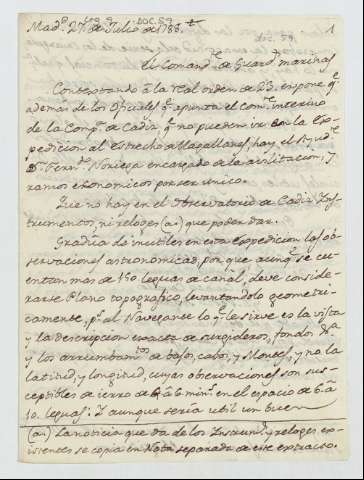 DOC. 59
Mad.d 27 de Julio de 1788.
1
El Comand.te de Guard.s marinas
Contextando á la real orden de 23. expone q.e
además de los Oficiales q.e apunta el Com.te interino
de la Comp.a de Cadiz q.e no pueden ir con la Ex-
pedicion al Estrecho de Magallanes, hay el Ayud.te
D.n Fern.do Noriega encargado de la avilitacion, y
ramos economicos por ser unico.
Que no hay en el Observatorio de Cadiz Ins-
trumentos, ni reloges (a.) que poder dar.
Gradúa de inutiles en esta Expedicion las ob-
servaciones astronomicas, por que aunq.e se cu-
entan mas de 150 leguas de canal, deve conside-
rarse Plano topografico, levantandolo geometri-
camente, p.s al Navegante lo q.e le sirve es la vista
y la descripcion exacta de surgideros, fondos &.a
y los arrumbam.tos de bajos, cabos, y Montes, y no la
latitud, y longitud, cuyas observaciones son sus-
ceptibles de ierro de 4 á 6 min.s en el espacio de 6 á
10. leguas. Y aunque seria util un buen
(a.) La noticia que da de los Instrum.tos y reloges exi-
stentes se copia en Nota separada de este extracto.